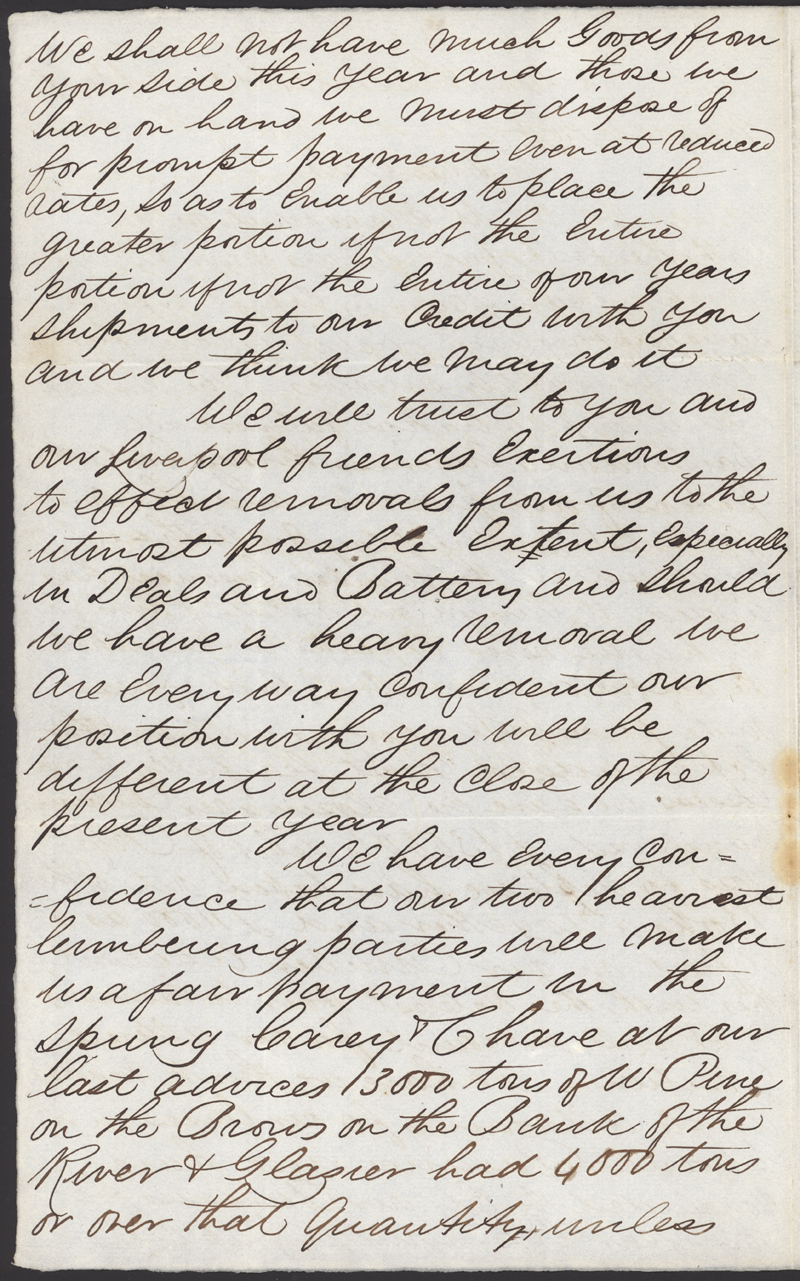 We shall not have much Goods from
your side this year and those we
have on hand we must dispose of
for prompt payment even at reduced
rates, so as to Enable us to place the
greater portion if not the Entire
portion if not the Entire of our years
shipments to our Credit with you
and we think we may do it
We will trust to you and
our Liverpool friends Exertions
to effect removals from us to the
utmost possible Extent, Especially
in Deals and Battens and should
we have a heavy removal we
are Every way confident our
position with you will be
different at the close of the
present year
We have Every Con=
=fidence that our two heaviest
lumbering parties will make
us a fair payment in the
spring Carey & C have at our
last advices 3000 tons of W Pine
on the Brows on the Bank of the
River & Glasier had 4000 tons
or over that quantity, unless